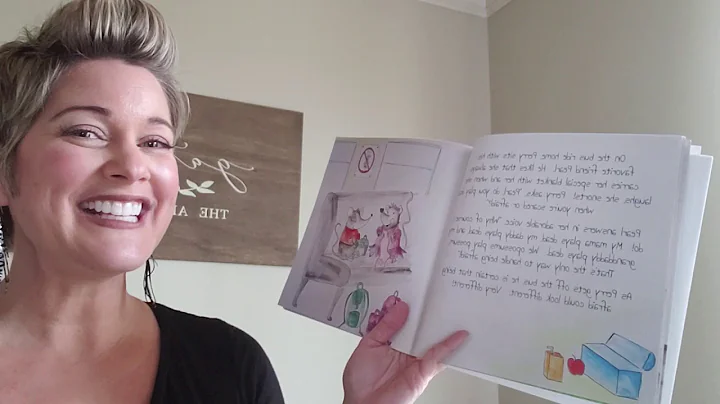 ga
THE
On the bus ride home Perry sits with his
favorite friend Pearl. He likes that she always
carries her special blanket with her and when she
laughs she snorts! Perry asks, "Pearl, do you play
when you're scared or afraid?"
Pearl answers in her adorable voice, "Why of course
do! My mama plays dead, my daddy plays dead and my
granddaddy plays dead. We opossums play possum.
That's the only way to handle being afraid."
As Perry gets off the bus he is certain that being
afraid could look different! Very different!